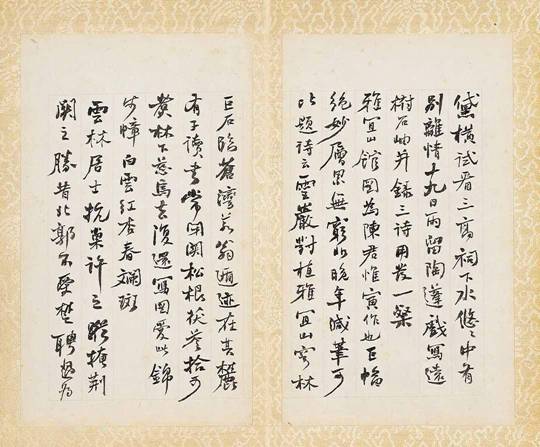 黛橫試看三高祠下水悠悠中有
別離情十九日雨留陶蓬戲寫遠
樹石岫并錄三詩用發一粲
雅宜山館圖為陳君惟寅作也巨幅
絕妙層累無窮此晚年減筆可
比題詩云雲巖對植雅宜山宅林
巨石臨蒼灣前翁遁迹在其麓
有子讀書常閉關松根茯苓拾可
煮林下慈烏去復還寫圖愛此錦
步幛白雲紅杏春斕斑
雲林居士抗巢許之蹤掩荊
關之勝昔北郭不受楚聘